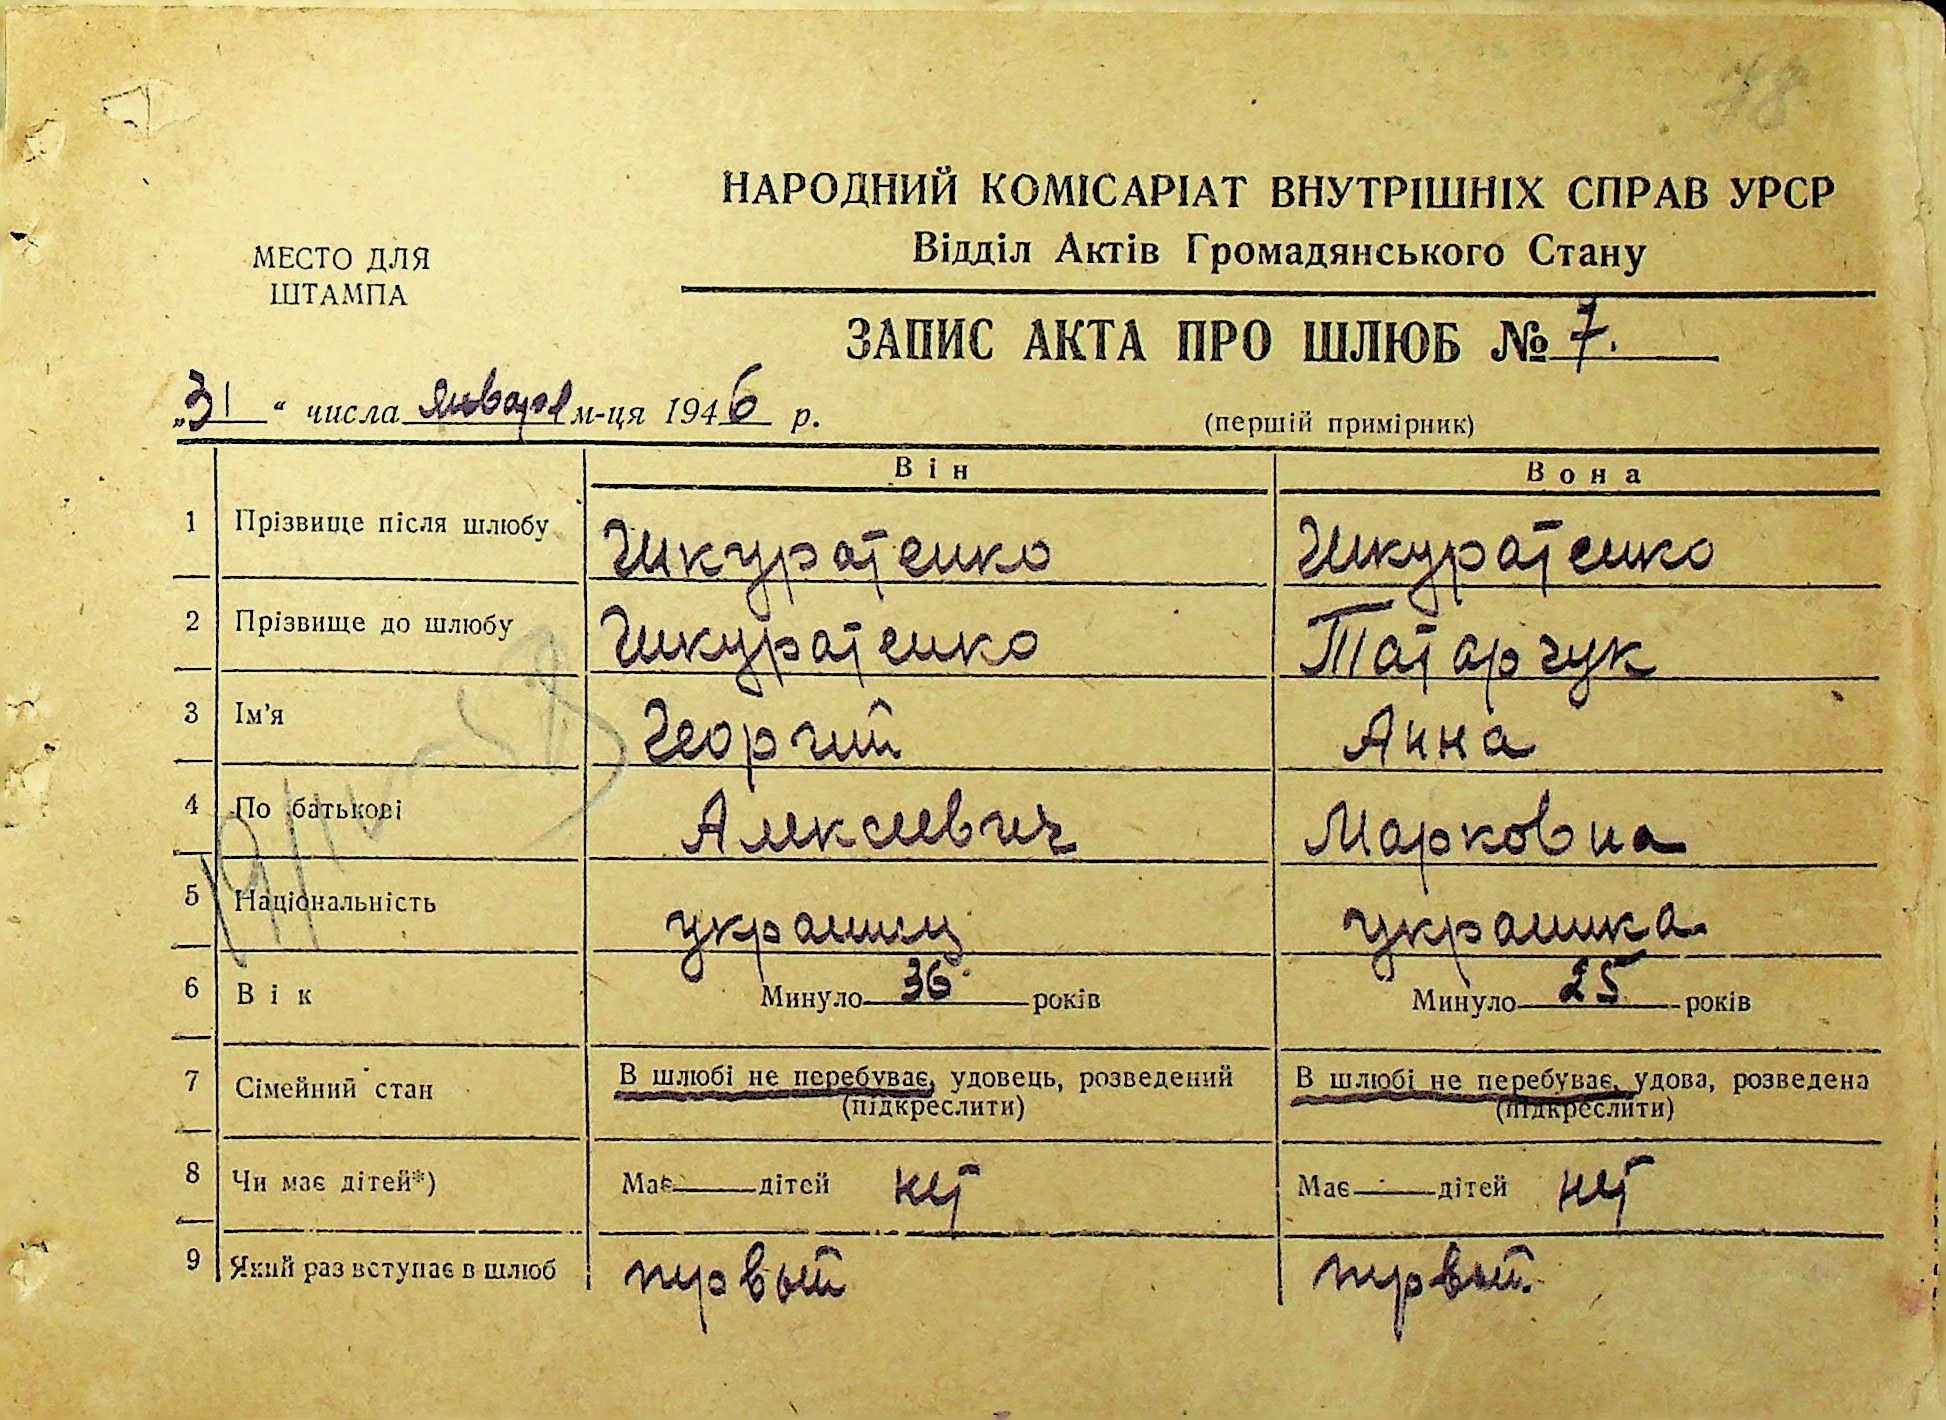 78
НАРОДНИЙ КОМІСАРІАТ ВНУТРІШНІХ СПРАВ УРСР
Відділ Актів Громадянського Стану
МЕСТО ДЛЯ
ШТАМПА
ЗАПИС АКТА ПРО ШЛЮБ № 7.
„31“ числа января м-ця 1946 р.
(перший примірник)
Він Вона
1 Прізвище після шлюбу Шкуратенко Шкуратенко
2 Прізвище до шлюбу Шкуратенко Татарчук
3 Ім'я Георгий Анна
4 По батькові Алексеевич Марковна
5 Національність украинец украинка
6 Вік Минуло 36 років Минуло 25 років
7 Сімейний стан В шлюбі не перебуває, удовець, розведений В шлюбі не перебуває, удова, розведена
(підкреслити) (підкреслити)
8 Чи має дітей*) Має дітей нет Має дітей нет
9 Який раз вступає в шлюб первый первый